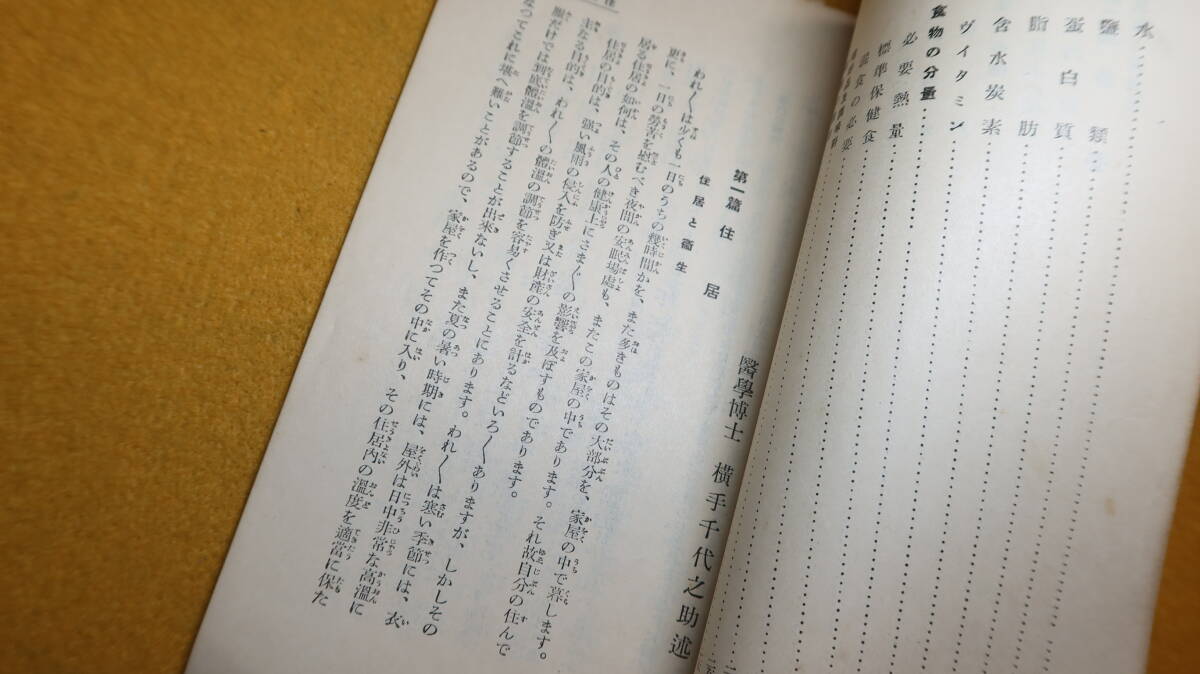 水
鹽類
蛋白質
脂肪
含水炭素
ヴイタミン
食物の分量
必要熱量
標準保健食
混食の必要
住
第一篇 住居
醫學博士 橫手千代之助述
住居と衞生
われ〳〵は少くも一日のうちの幾時間かを、また多きものはその大部分を、家屋の中で暮します。
更に、一日の勞苦を慰むべき夜間の安眠場處も、またこの家屋の中であります。それ故自分の住んで
居る住居の如何は、その人の健康上にさま〴〵の影響を及ぼすものであります。
住居の目的は、强い風雨の侵入を防ぎ又は財產の安全を計るなどいろ〳〵ありますが、しかしその
主なる目的は、われ〳〵の體溫の調節を容易くさせることにあります。われ〳〵は寒い季節には、衣
服だけでは到底體溫を調節することが出來ないし、また夏の暑い時期には、屋外は日中非常な高溫に
なつてこれに堪へ難いことがあるので、家屋を作つてその中に入り、その住居內の溫度を適當に保た